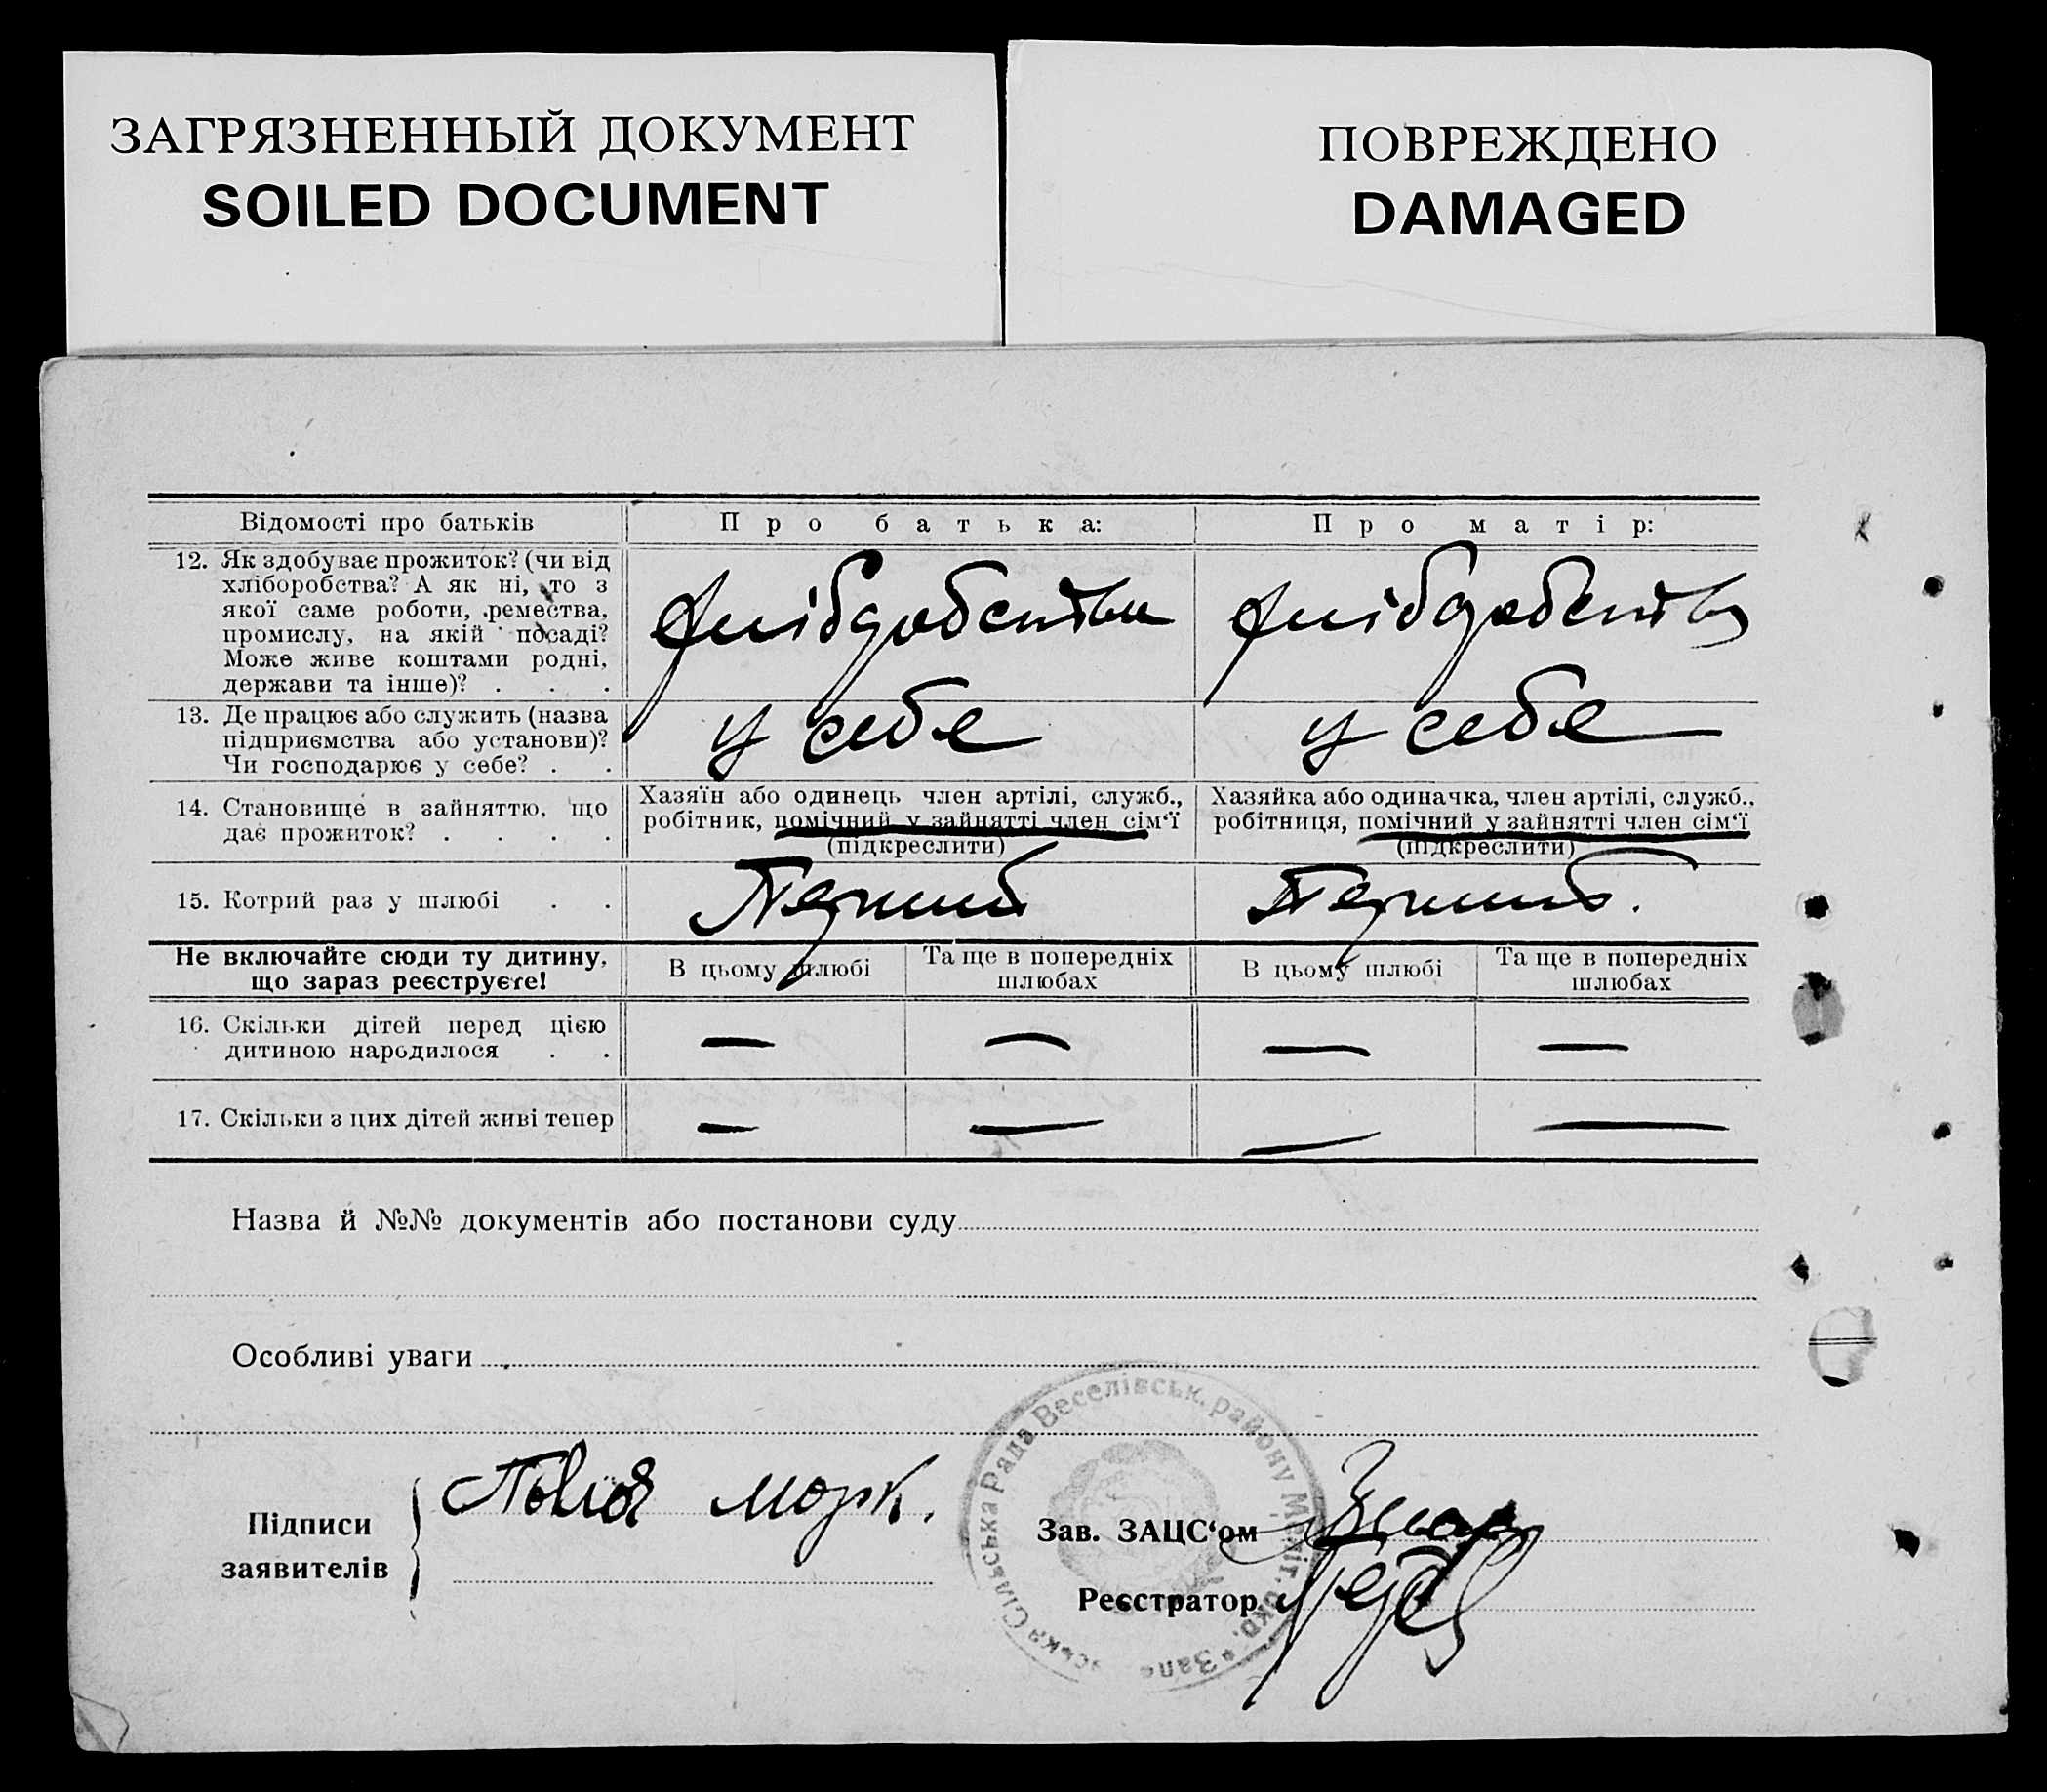 ЗАГРЯЗНЕННЫЙ ДОКУМЕНТ
SOILED DOCUMENT
ПОВРЕЖДЕНО
DAMAGED
Відомості про батьків
Про батька:
Про матір:
12. Як здобуває прожиток? (чи від
хліборобства? А як ні, то з
якої саме роботи, ремества,
промислу, на якій посаді?
Може живе коштами родні,
держави та інше)? . . .
13. Де працює або служить (назва
підприємства або установи)?
Чи господарює у себе? . .
у себе
у себе
14. Становище в зайняттю, що
дає прожиток? . . . .
Хазяїн або одинець член артілі, служб.,
робітник, помічний у зайнятті член сім‘ї
(підкреслити)
Хазяйка або одиначка, член артілі, служб.,
робітниця, помічний у зайнятті член сім‘ї
(підкреслити)
15. Котрий раз у шлюбі . .
Перший
Перший.
Не включайте сюди ту дитину,
що зараз реєструєте!
В цьому шлюбі
Та ще в попередніх
шлюбах
В цьому шлюбі
Та ще в попередніх
шлюбах
16. Скільки дітей перед цією
дитиною народилося . .
— — — —
17. Скільки з цих дітей живі тепер
— — — —
Назва й №№ документів або постанови суду
Особливі уваги
Підписи
заявителів
Зав. ЗАЦС‘ом
Реєстратор
Сільська Рада Веселівськ. району, Меліт. окр.